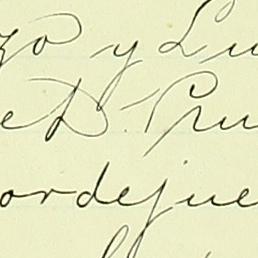 zo y Lu
e D. Pru
ordejue